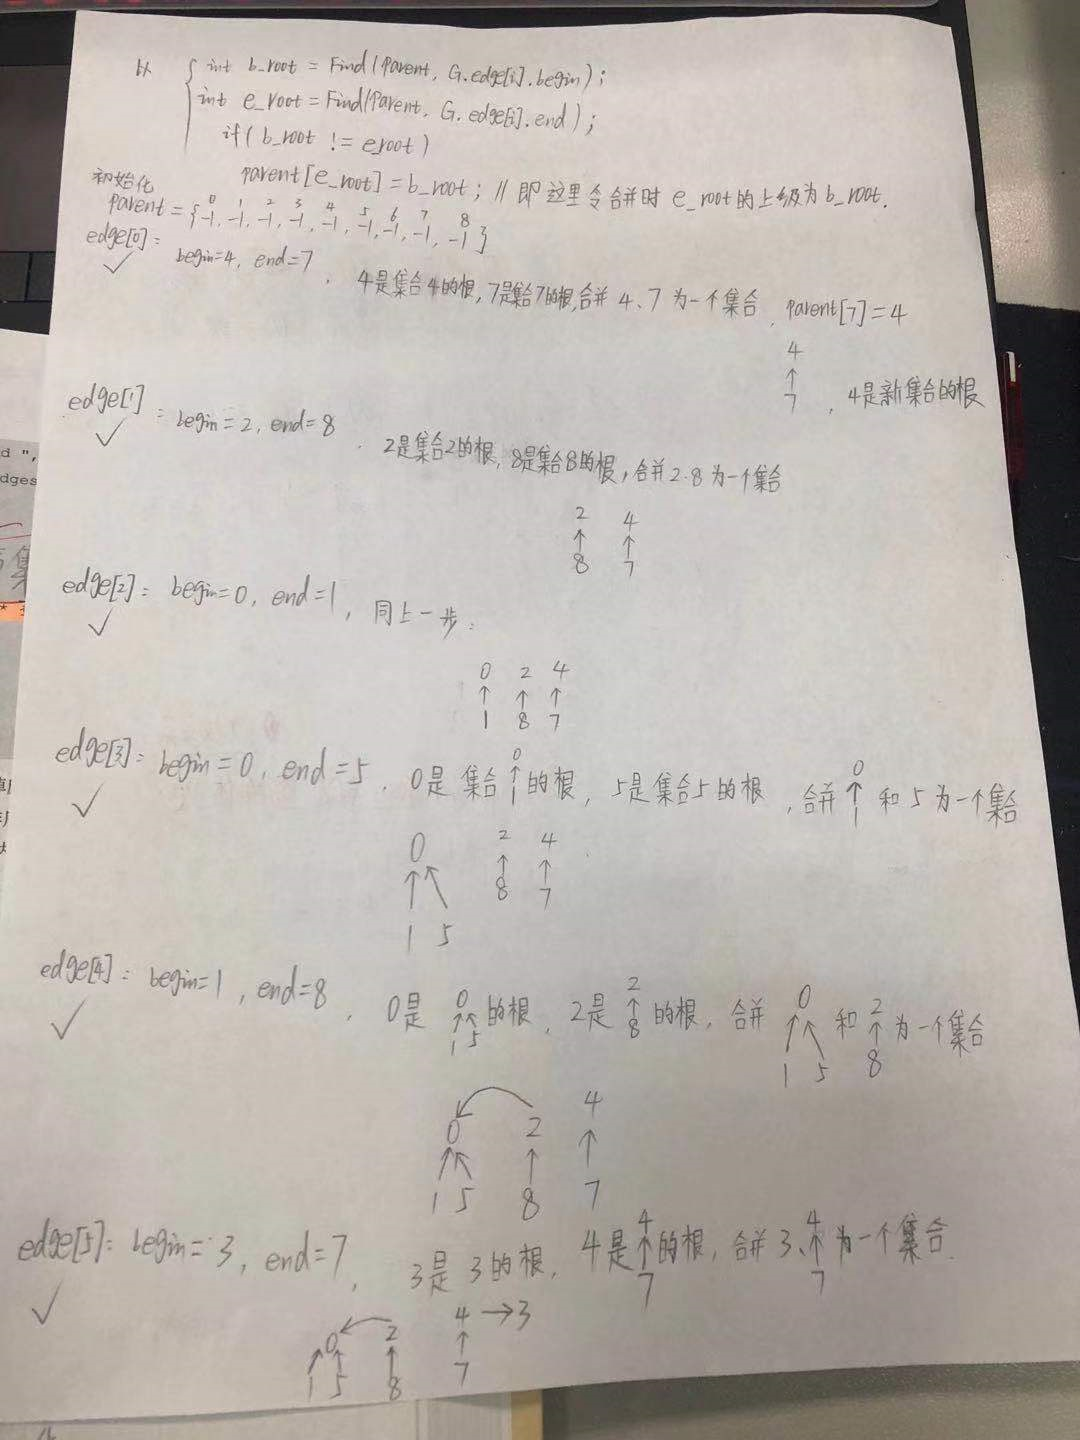 以 { int b_root = Find(Parent, G.edge[i].begin);
int e_root = Find(Parent, G.edge[i].end);
if( b_root != e_root)
parent[e_root] = b_root; // 即这里令合并时 e_root的上级为 b_root.
初始化
0 1 2 3 4 5 6 7 8
Parent = {-1, -1, -1, -1, -1, -1, -1, -1, -1}
edge[0]: begin=4, end=7, 4是集合4的根, 7是集合7的根, 合并 4、7 为一个集合, parent[7]=4
✓
4
↑
7, 4是新集合的根
edge[1]: begin=2, end=8. 2是集合2的根, 8是集合8的根, 合并2.8 为一个集合
✓
2 4
↑ ↑
8 7
edge[2]: begin=0, end=1, 同上一步:
✓
0 2 4
↑ ↑ ↑
1 8 7
edge[3]: begin=0, end=5. 0是 集合 0↑1 的根, 5是集合5的根, 合并 0↑1 和 5 为一个集合
✓
0 2 4
↑↖ ↑ ↑
8 7
1 5
edge[4]: begin=1, end=8, 0是 0 ↑↖ 1 5 的根, 2是 2↑8 的根, 合并 0 ↑↖ 1 5 和 2↑8 为一个集合
✓
4
0 2 ↑
↑↖ ↑
1 5 8 7
edge[5]: begin=3, end=7, 3是 3的根, 4是 4↑7 的根, 合并 3、4↑7 为一个集合.
✓
4 → 3
0 2 ↑
↑ ↑ ↑ 7
1 5 8
d ",
dges